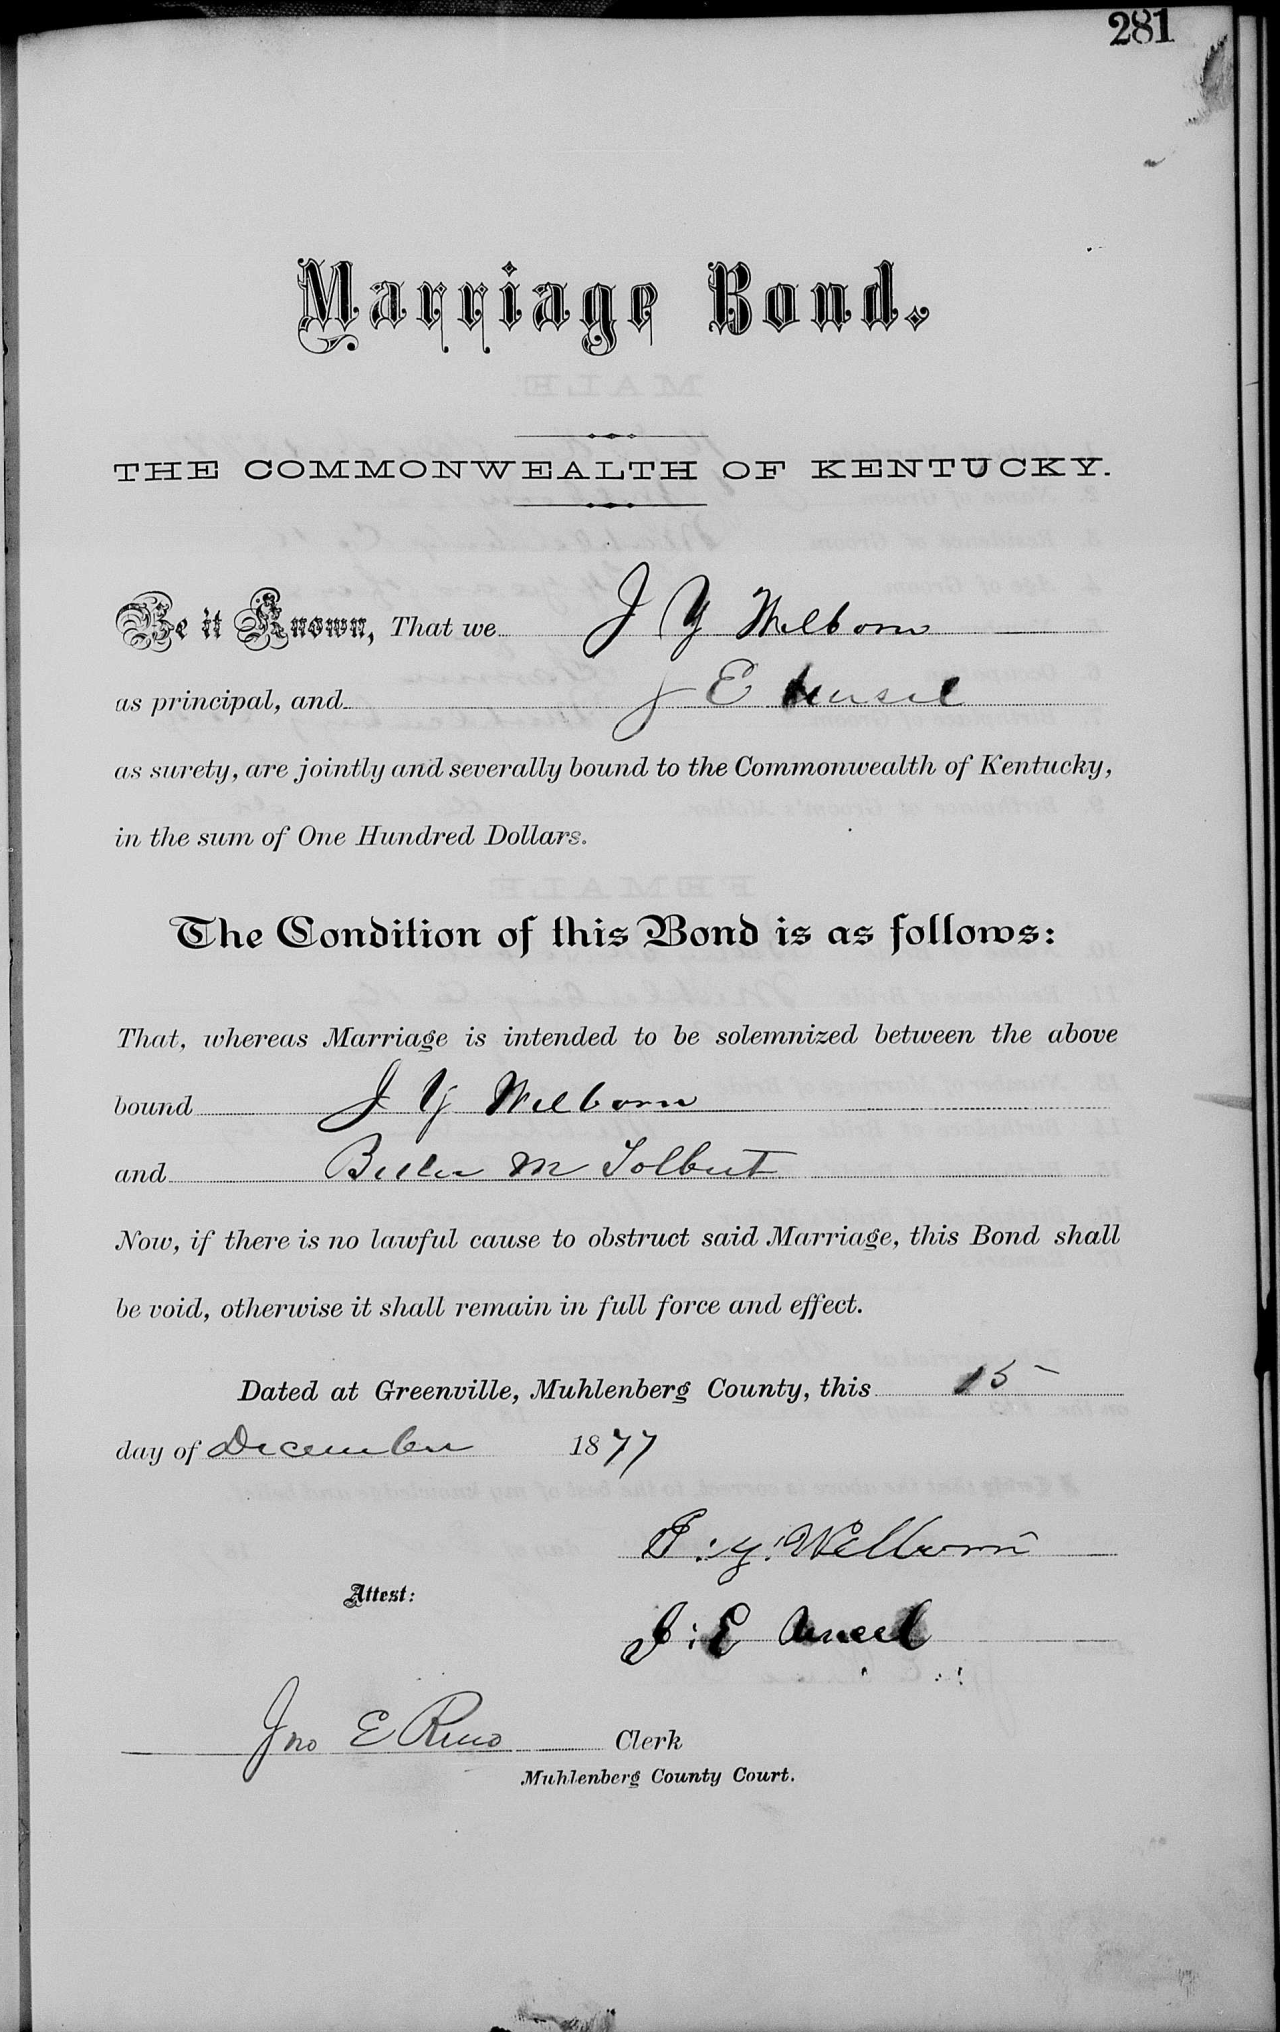 281
Marriage Bond.
THE COMMONWEALTH OF KENTUCKY.
Be it Known, That we J Y Welborn
as principal, and J E
as surety, are jointly and severally bound to the Commonwealth of Kentucky,
in the sum of One Hundred Dollars.
The Condition of this Bond is as follows:
That, whereas Marriage is intended to be solemnized between the above
bound J Y Welborn
and M Tolbert
Now, if there is no lawful cause to obstruct said Marriage, this Bond shall
be void, otherwise it shall remain in full force and effect.
Dated at Greenville, Muhlenberg County, this 15
day of December 1877
J. Y. Welborn
Attest:
J. E
Jno E Reno Clerk
Muhlenberg County Court.